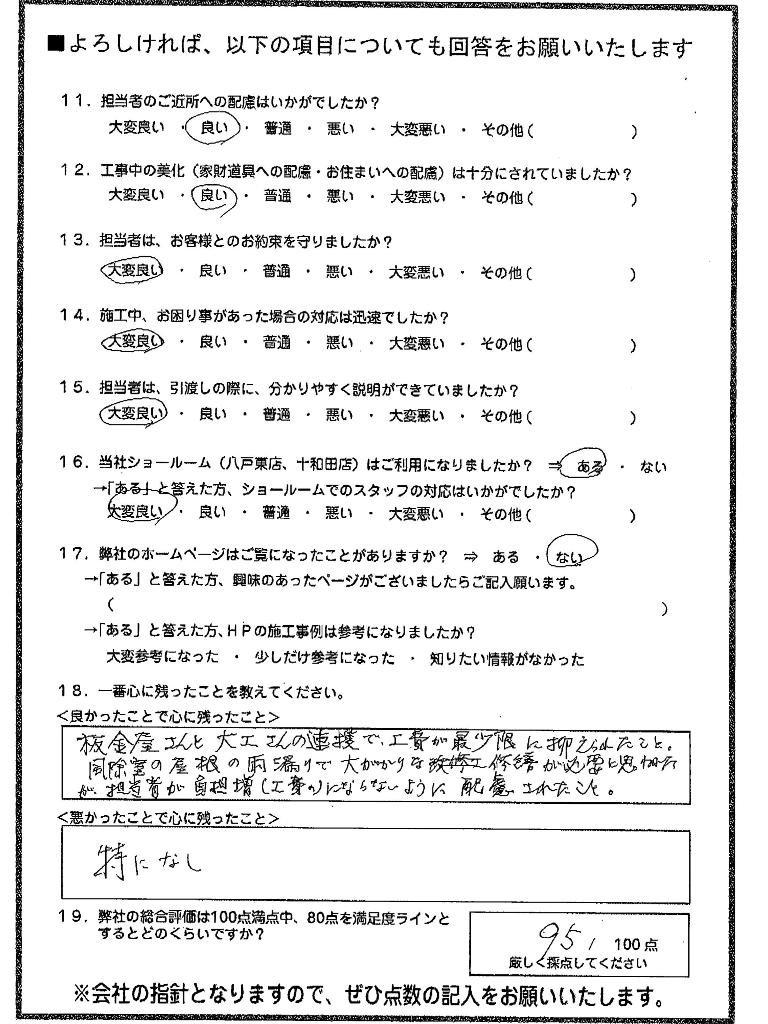 ■よろしければ、以下の項目についても回答をお願いいたします
11．担当者のご近所への配慮はいかがでしたか？
大変良い ・ 良い ・ 普通 ・ 悪い ・ 大変悪い ・ その他（ ）
12．工事中の美化（家財道具への配慮・お住まいへの配慮）は十分にされていましたか？
大変良い ・ 良い ・ 普通 ・ 悪い ・ 大変悪い ・ その他（ ）
13．担当者は、お客様とのお約束を守りましたか？
大変良い ・ 良い ・ 普通 ・ 悪い ・ 大変悪い ・ その他（ ）
14．施工中、お困り事があった場合の対応は迅速でしたか？
大変良い ・ 良い ・ 普通 ・ 悪い ・ 大変悪い ・ その他（ ）
15．担当者は、引渡しの際に、分かりやすく説明ができていましたか？
大変良い ・ 良い ・ 普通 ・ 悪い ・ 大変悪い ・ その他（ ）
16．当社ショールーム（八戸東店、十和田店）はご利用になりましたか？ ⇒ ある ・ ない
→「ある」と答えた方、ショールームでのスタッフの対応はいかがでしたか？
大変良い ・ 良い ・ 普通 ・ 悪い ・ 大変悪い ・ その他（ ）
17．弊社のホームページはご覧になったことがありますか？ ⇒ ある ・ ない
→「ある」と答えた方、興味のあったページがございましたらご記入願います。
（ ）
→「ある」と答えた方、HPの施工事例は参考になりましたか？
大変参考になった ・ 少しだけ参考になった ・ 知りたい情報がなかった
18．一番心に残ったことを教えてください。
<良かったことで心に残ったこと>
板金屋さんと大工さんの連携で、工費が最少限に抑えられたこと。
風除室の屋根の雨漏りで大がかりな改修工修繕が必要と思われた
が、担当者が負担増（工費の）にならないように配慮されたこと。
<悪かったことで心に残ったこと>
特になし
19．弊社の総合評価は100点満点中、80点を満足度ラインと
するとどのくらいですか？
95/ 100点
厳しく採点してください
※会社の指針となりますので、ぜひ点数の記入をお願いいたします。